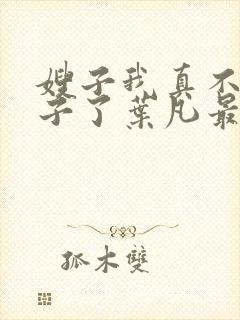 嫂子我真不
子了葉凡最
孤木雙